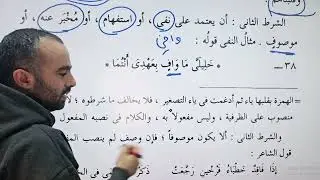 الشرط الثانى : أن يعتمد على نفي ، أو استفهام ، أو مُخْبَر عنه ، أو
موصوف . مثالُ النفى قولُه :
وافي
٣٨ — خَلِيلَيَّ مَا وَافٍ بِعَهْدِىَ أَنْتُمَا *
الهمزة بقلبها ياء ثم أدغمت فى ياء التصغير ، فلا يخالف ما شرطوه
منصوب على الظرفية ، وليس مفعولا به ، والكلام فى نصبه المفعول
والشرط الثانى : ألا يكون موصوفا ؛ فإن وصف لم ينصب المفعول
قول الشاعر :
إذَا فَاقِدٌ خَطْبَاءُ فَرْخَيْنِ رَجَّعَتْ